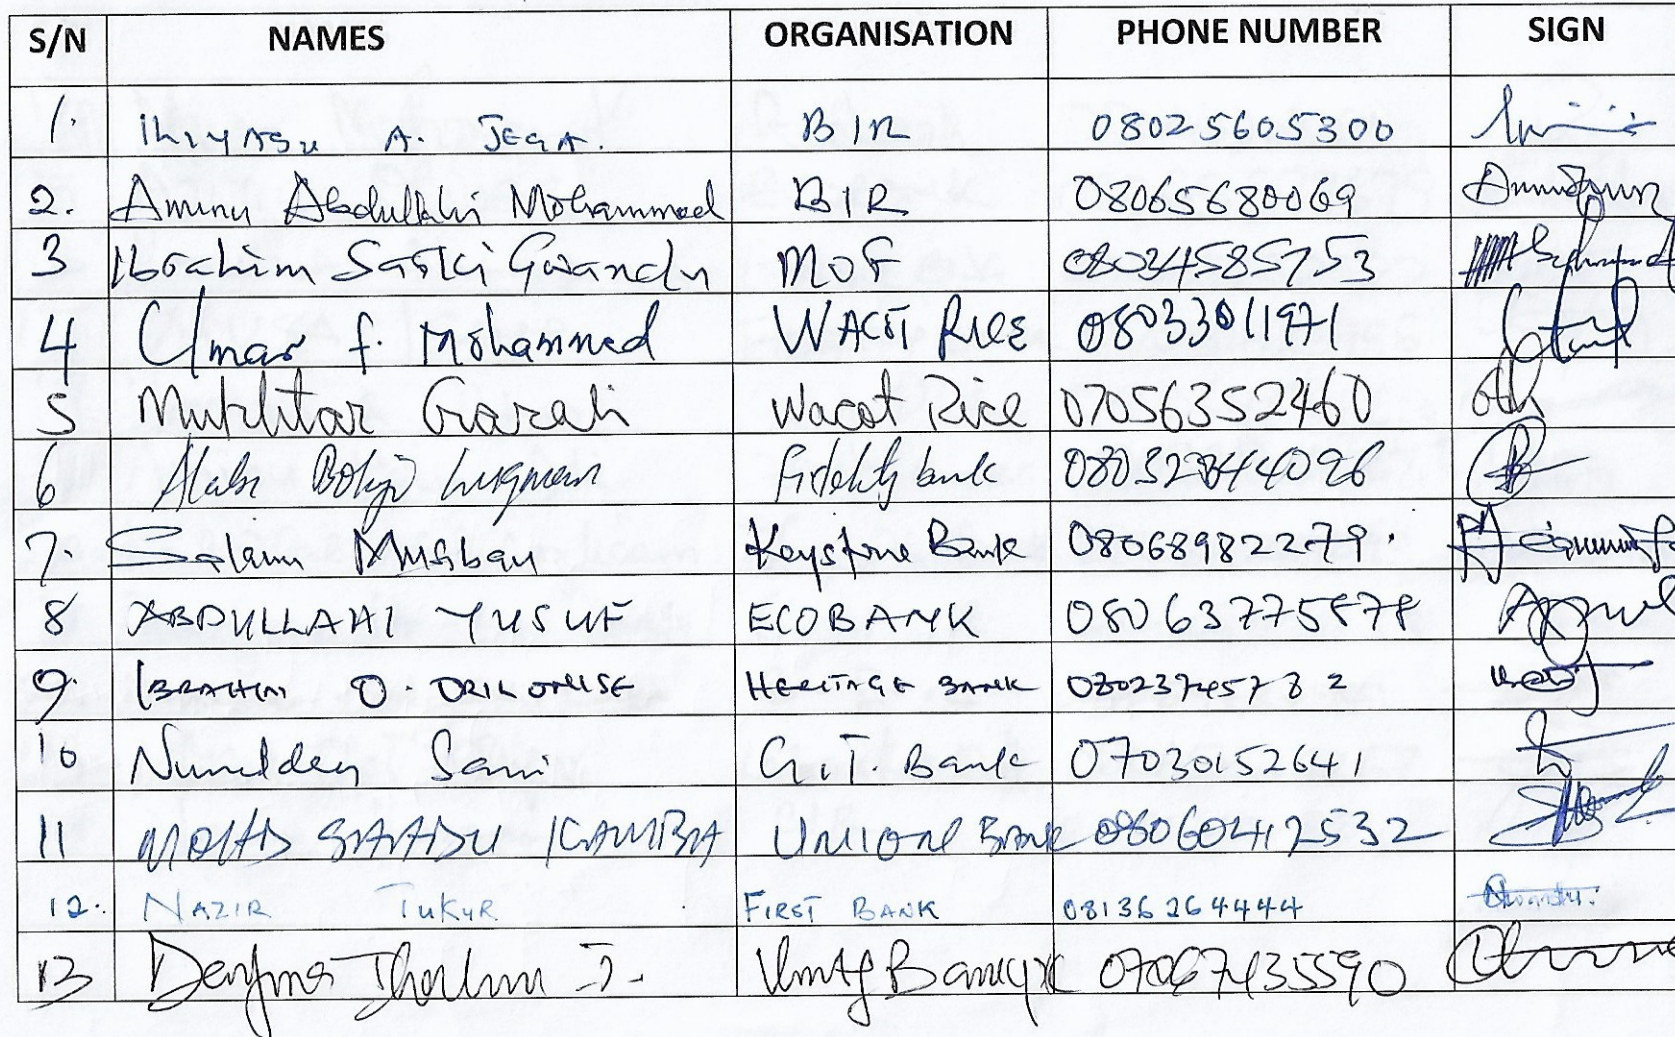 S/N NAMES ORGANISATION PHONE NUMBER SIGN
1. Iliyasu A. JEGA. BIR 08025605300
2. Aminu Abdullahi Mohammed BIR 08065680069
3 Ibrahim Sarki Gwandu MOF 08034585753
4 Umar f. Mohammed WACOT RICE 08033011971
5 Mukhtar Garali Wacot Rice 07056352460
6 Alabi Bolaji Luqman Fidelity bank
7. Salami Musbau Keystone Bank 08068982279.
8 ABDULLAHI YUSUF ECOBANK 08063775878
9. IBRAHIM O. HERITAGE BANK 08023745782
10 Nuruldeen Sani G.T. Bank 07030152641
11 MOHD SAADU KAMBA UNION BANK 08060412532
12. NAZIR TUKUR FIRST BANK 08136264444
13 J. Unity Bank plc 07067435590